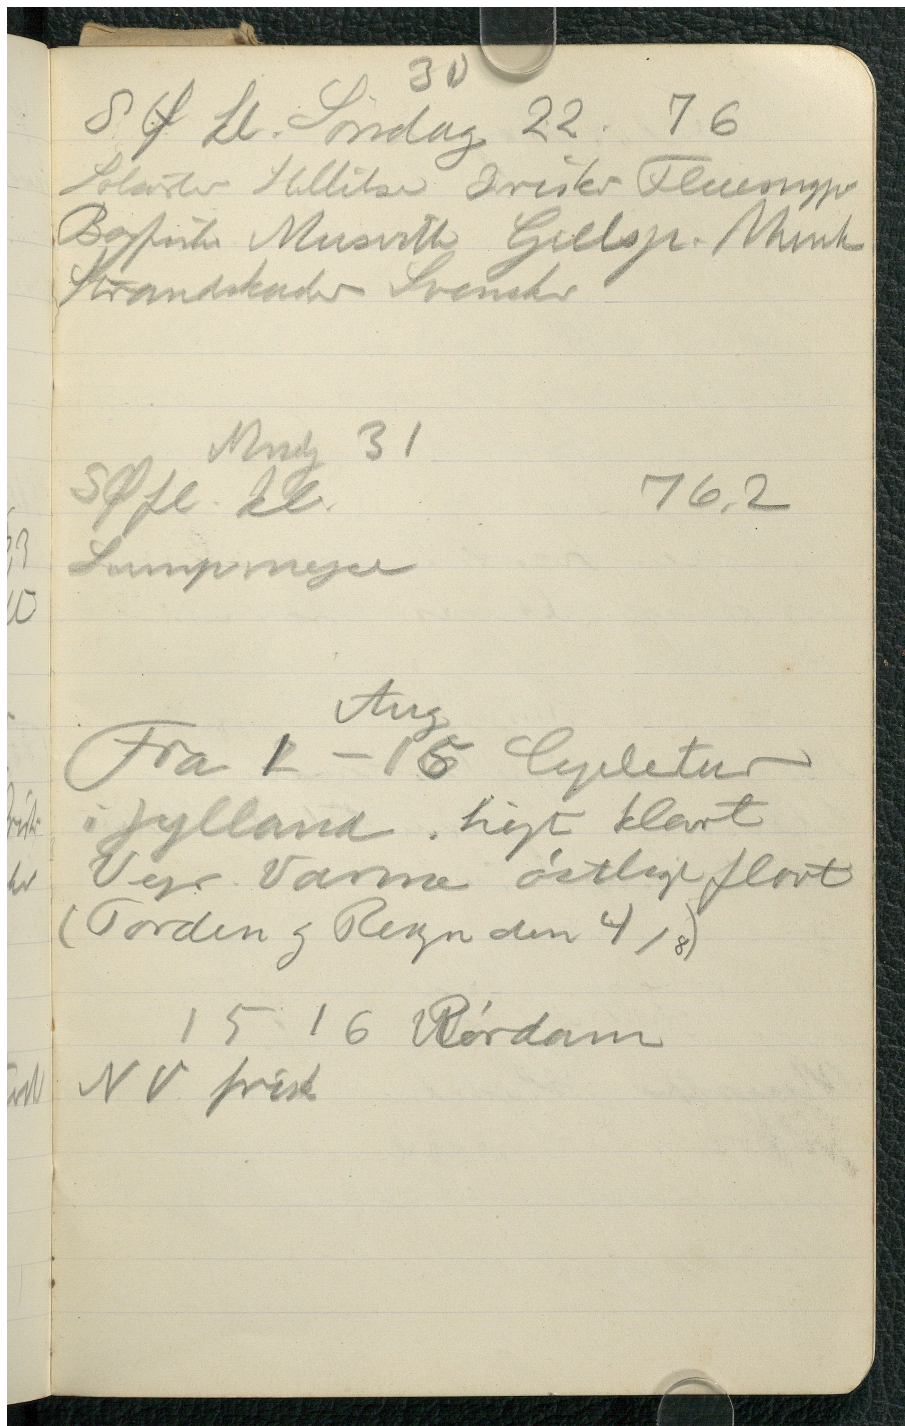 30
S Ø kl. Söndag 22. 76
Solsorter Stillitser Irisker Fluesnapp
Bogfinke Musvitte Gulsp. Munk
Strandskader Svensker
Mndg 31
SØ fl. kl. 76.2
Sumpmejse
Aug
Fra 1 - 15 Cycletur
i Jylland. högt klart
Vejr Varme östlig flovt
(Torden g Regn den 4/8)
15 16 Rördam
N V frisk